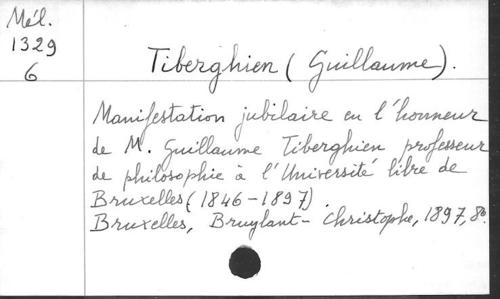 Mél.
1329
6
Tiberghien (Guillaume).
Manifestation jubilaire en l'honneur
de M. Guillaume Tiberghien professeur
de philosophie à l'Université libre de
Bruxelles (1846-1897).
Bruxelles, Bruylant-Christophe, 1897, 8º.